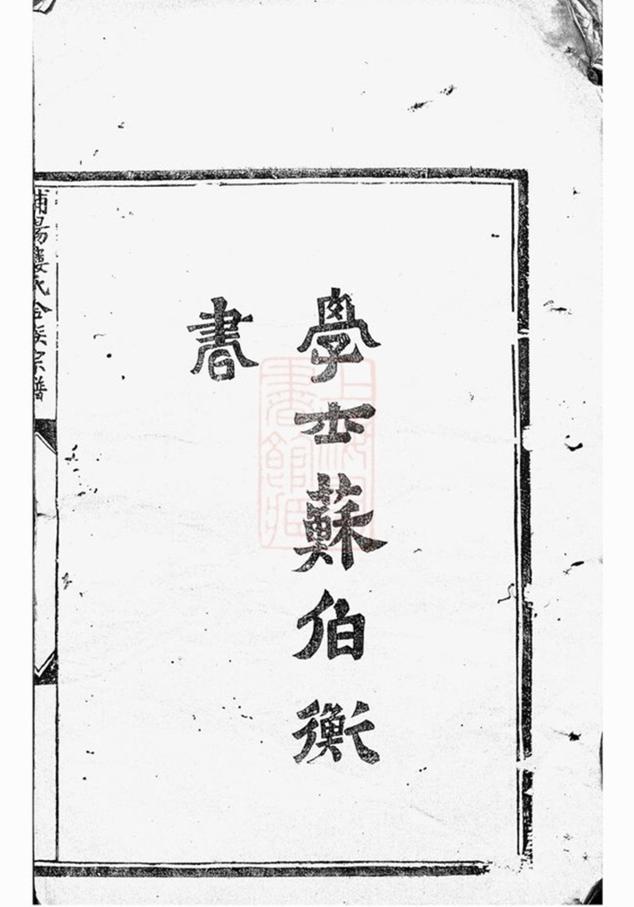 學士蘇伯衡
書
浦陽婁氏合族宗譜